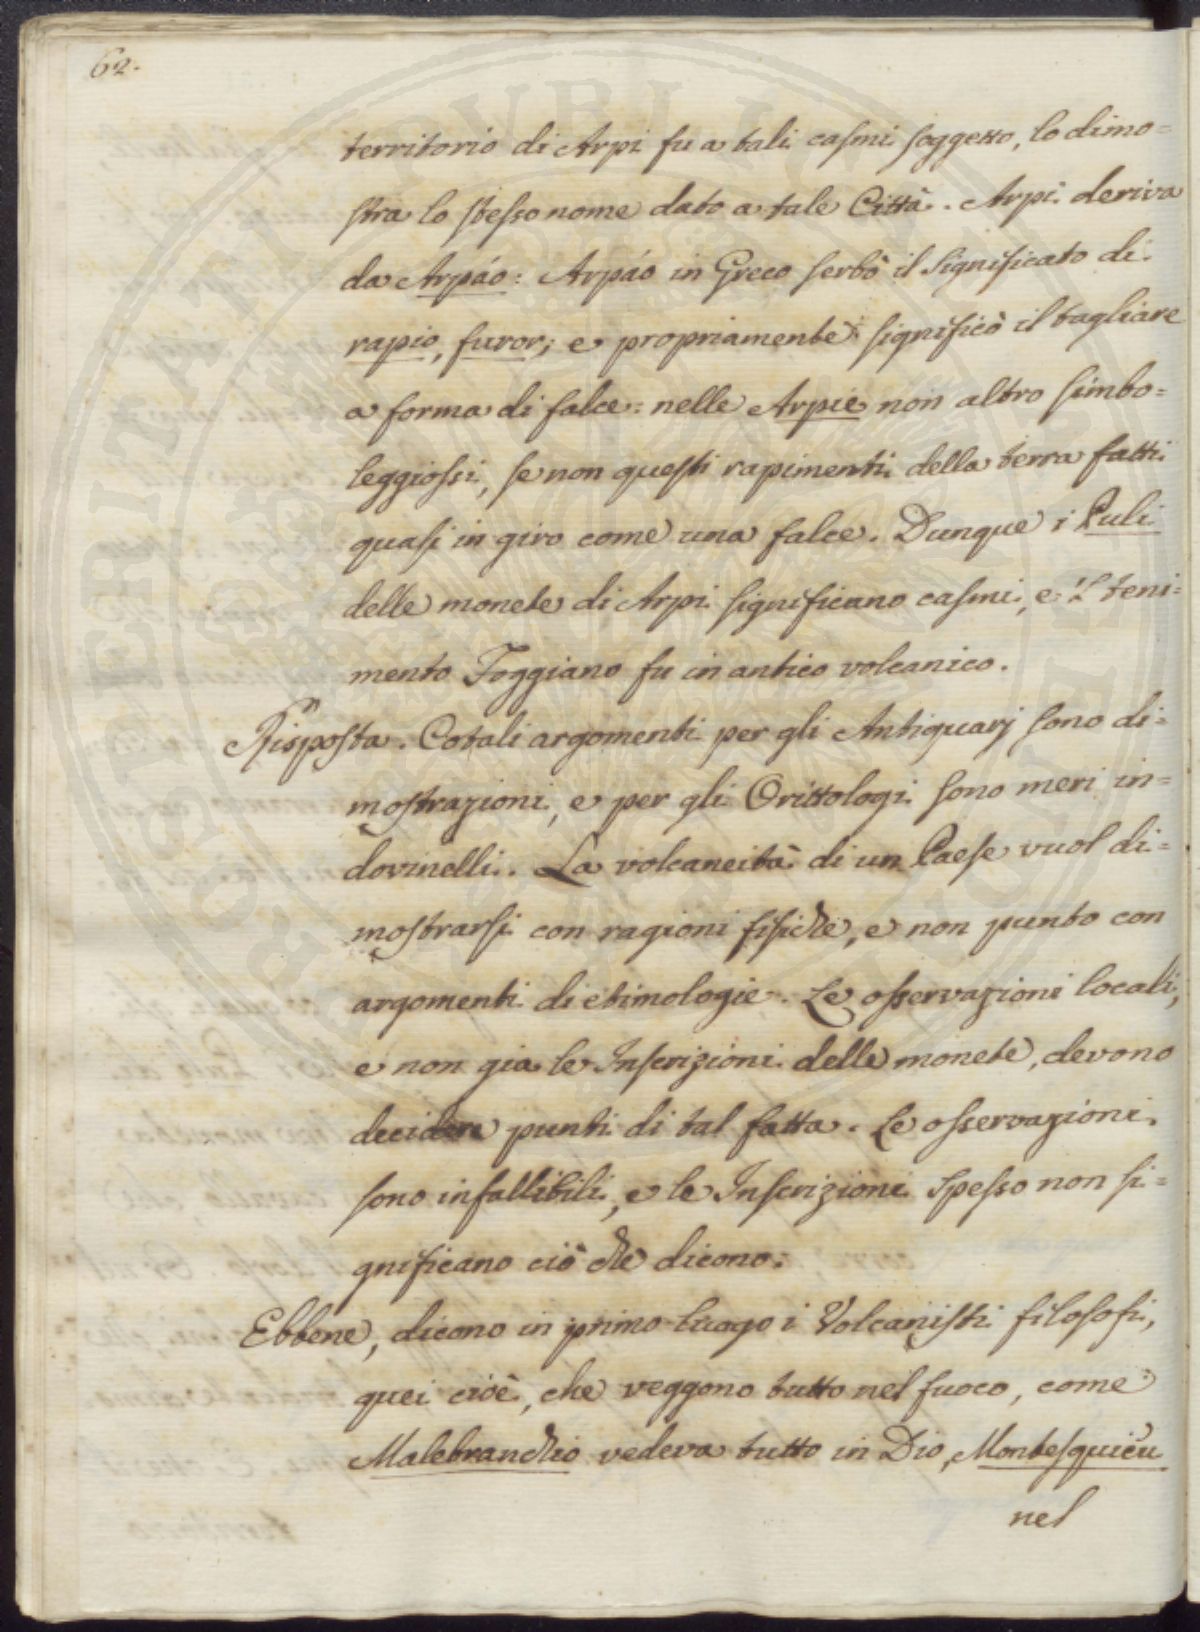 62.
territorio di Arpi fu a tali casmi soggetto, lo dimo=
stra lo stesso nome dato a tale Città. Arpi deriva
da Arpáo: Arpáo in Greco serbò il significato di
rapio, furor; e propriamente significò il tagliare
a forma di falce: nelle Arpie non altro simbo=
leggiossi, se non questi rapimenti della terra fatti
quasi in giro come una falce. Dunque i Puli
delle monete di Arpi significano casmi, e 'l teni=
mento Foggiano fu in antico volcanico.
Risposta. Cotali argomenti per gli Antiquarj sono di=
mostrazioni, e per gli Orittologi sono meri in=
dovinelli. La volcaneità di un Paese vuol di=
mostrarsi con ragioni fisiche, e non punto con
argomenti di etimologie. Le osservazioni locali,
e non gia le Inscrizioni delle monete, devono
decidere punti di tal fatta. Le osservazioni
sono infallibili, e le Inscrizioni spesso non si=
gnificano ciò che dicono.
Ebbene, dicono in primo luogo i Volcanisti filosofi,
quei cioè, che veggono tutto nel fuoco, come
Malebranchio vedeva tutto in Dio, Montesquieu
nel
POSTERITATI PUBLICAE